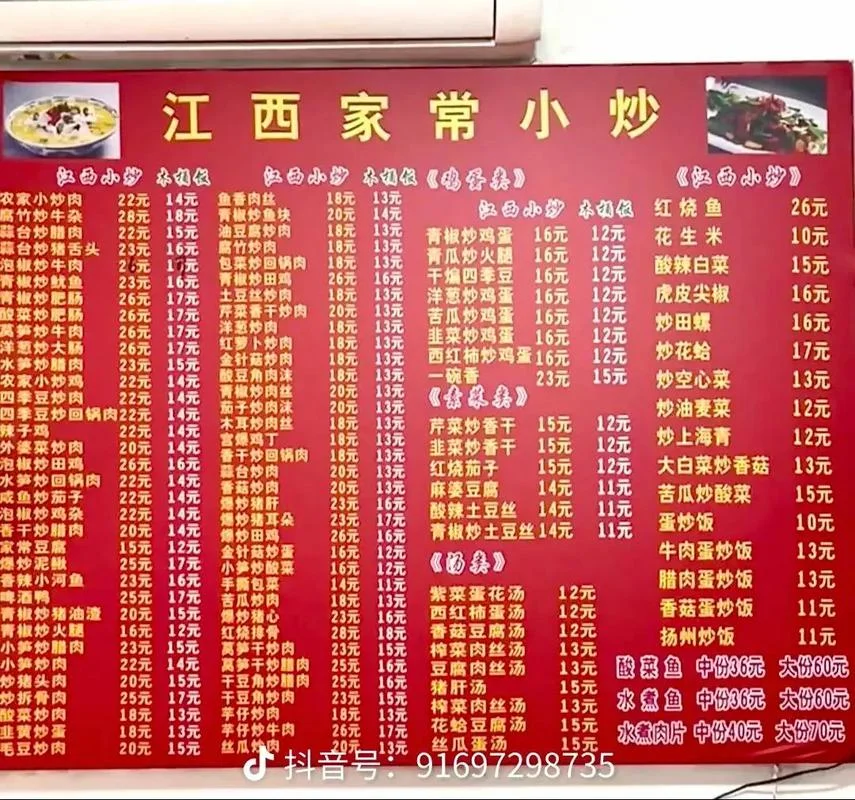 江西家常小炒
江西小炒 木桶饭
农家小炒肉 22元 14元
腐竹炒牛杂 28元 18元
蒜台炒腊肉 22元 15元
蒜台炒猪舌头 23元 16元
泡椒炒牛肉
青椒炒鱿鱼 23元 16元
青椒炒肥肠 26元 17元
酸菜炒肥肠 26元 17元
莴笋炒牛肉 26元 17元
洋葱炒大肠 26元 17元
水笋炒腊肉 23元 15元
农家小炒鸡 22元 14元
四季豆炒肉 22元 14元
四季豆炒回锅肉 22元 14元
辣子鸡 22元 14元
外婆菜炒肉 20元 14元
泡椒炒田鸡 26元 16元
水笋炒回锅肉 22元 14元
咸鱼炒茄子 22元 14元
泡椒炒鸡杂 22元 14元
香干炒腊肉 20元 14元
家常豆腐 15元 12元
爆炒泥鳅 25元 17元
香辣小河鱼 23元 16元
啤酒鸭 25元 17元
青椒炒猪油渣 20元 15元
青椒炒火腿 16元 12元
小笋炒腊肉 23元 15元
小笋炒肉 22元 14元
炒猪头肉 20元 15元
炒拆骨肉 25元 17元
酸菜炒肉 18元 13元
韭黄炒蛋 18元 13元
毛豆炒肉 20元 15元
江西小炒 木桶饭
鱼香肉丝 18元 13元
青椒炒鱼块 20元 14元
油豆腐炒肉 18元 13元
腐竹炒肉 18元 13元
包菜炒回锅肉 18元 13元
青椒炒田鸡 26元 16元
土豆丝炒肉 18元 13元
芹菜香干炒肉 20元 13元
洋葱炒肉 18元 13元
红萝卜炒肉 18元 13元
金针菇炒肉 18元 13元
酸豆角肉沫 18元 13元
青椒炒肉丝 18元 13元
茄子炒肉沫 20元 13元
木耳炒肉丝 18元 13元
宫爆鸡丁 18元 13元
香干炒回锅肉 18元 13元
蒜台炒肉 20元 13元
香菇炒肉 20元 13元
爆炒猪肝 23元 16元
爆炒猪耳朵 23元 17元
爆炒田鸡 26元 16元
金针菇炒蛋 16元 12元
小笋炒酸菜 16元 12元
手撕包菜 14元 11元
苦瓜炒肉 18元 13元
爆炒猪心 23元 16元
红烧排骨 28元 18元
莴笋干炒肉 23元 15元
莴笋干炒腊肉 25元 16元
干豆角炒腊肉 25元 16元
干豆角炒肉 23元 15元
芋仔炒肉 18元 13元
芋仔炒牛肉 26元 17元
丝瓜炒肉 20元 13元
《鸡蛋类》
江西小炒 木桶饭
青椒炒鸡蛋 16元 12元
青瓜炒火腿 16元 12元
干煸四季豆 16元 12元
洋葱炒鸡蛋 16元 12元
苦瓜炒鸡蛋 16元 12元
韭菜炒鸡蛋 16元 12元
西红柿炒鸡蛋 16元 12元
一碗香 23元 15元
《素菜类》
芹菜炒香干 15元 12元
韭菜炒香干 15元 12元
红烧茄子 15元 12元
麻婆豆腐 14元 11元
酸辣土豆丝 14元 11元
青椒炒土豆丝 14元 11元
《汤类》
紫菜蛋花汤 12元
西红柿蛋汤 12元
香菇豆腐汤 12元
榨菜肉丝汤 13元
豆腐肉丝汤 13元
猪肝汤 15元
榨菜肉丝汤 13元
花蛤豆腐汤 15元
丝瓜蛋汤 15元
《江西小炒》
红烧鱼 26元
花生米 10元
酸辣白菜 15元
虎皮尖椒 16元
炒田螺 16元
炒花蛤 17元
炒空心菜 13元
炒油麦菜 12元
炒上海青 12元
大白菜炒香菇 13元
苦瓜炒酸菜 15元
蛋炒饭 10元
牛肉蛋炒饭 13元
腊肉蛋炒饭 13元
香菇蛋炒饭 11元
扬州炒饭 11元
酸菜鱼 中份36元 大份60元
水煮鱼 中份36元 大份60元
水煮肉片 中份40元 大份70元
抖音号：91697298735